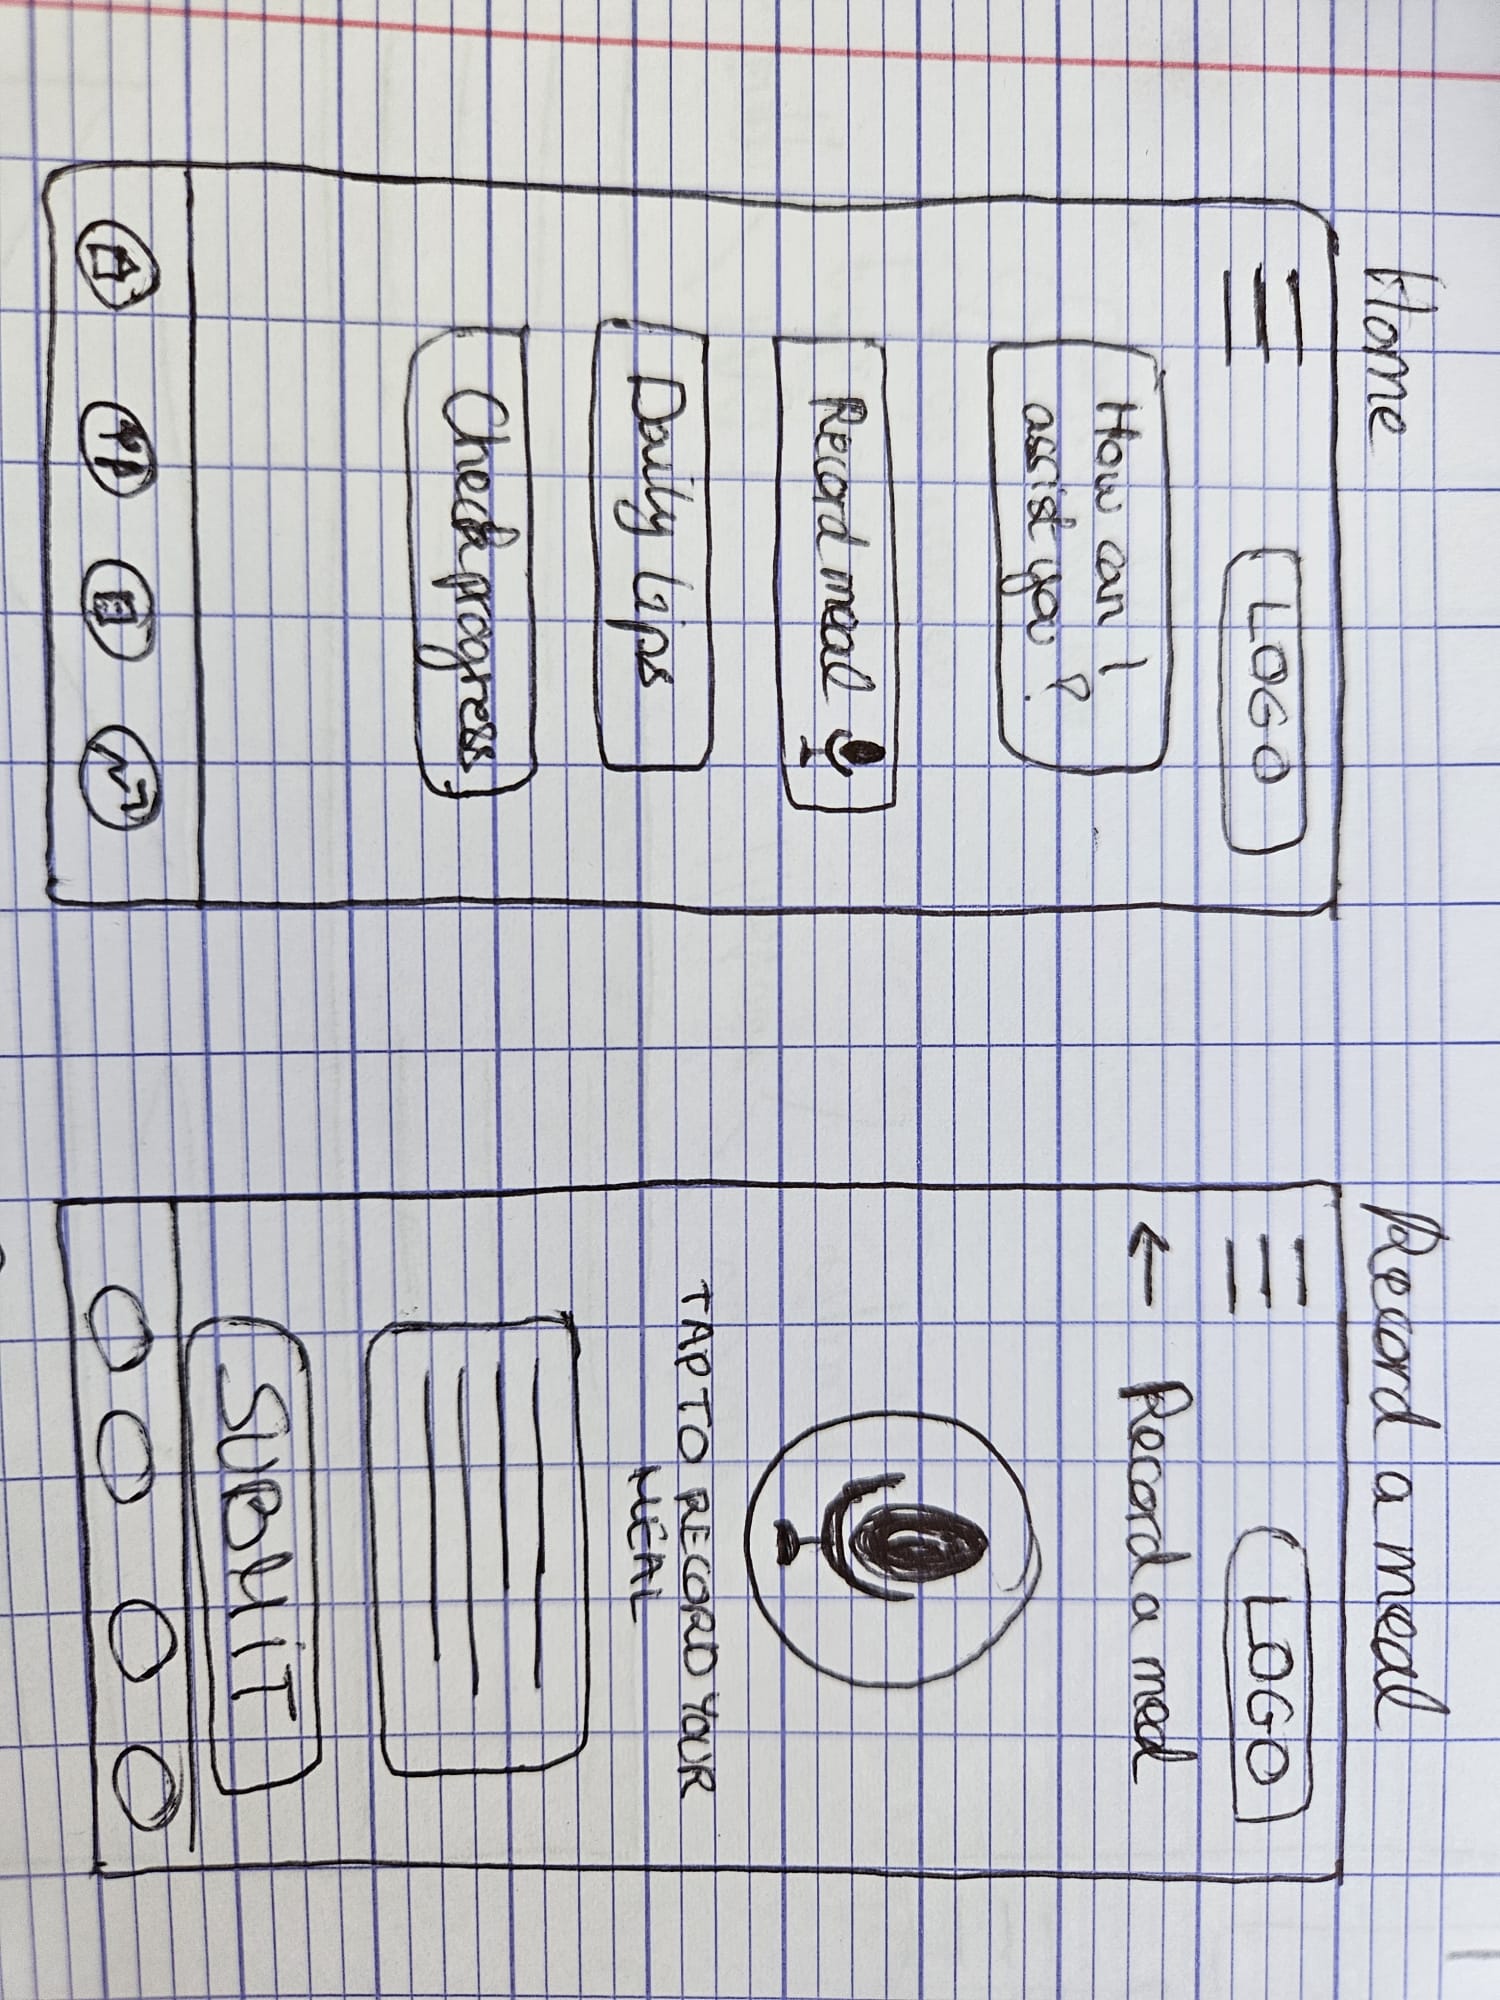 Home
LOGO
How can I
assist you?
Record meal
Daily tips
Check progress
Record a meal
LOGO
Record a meal
TAP TO RECORD YOUR
MEAL
SUBMIT